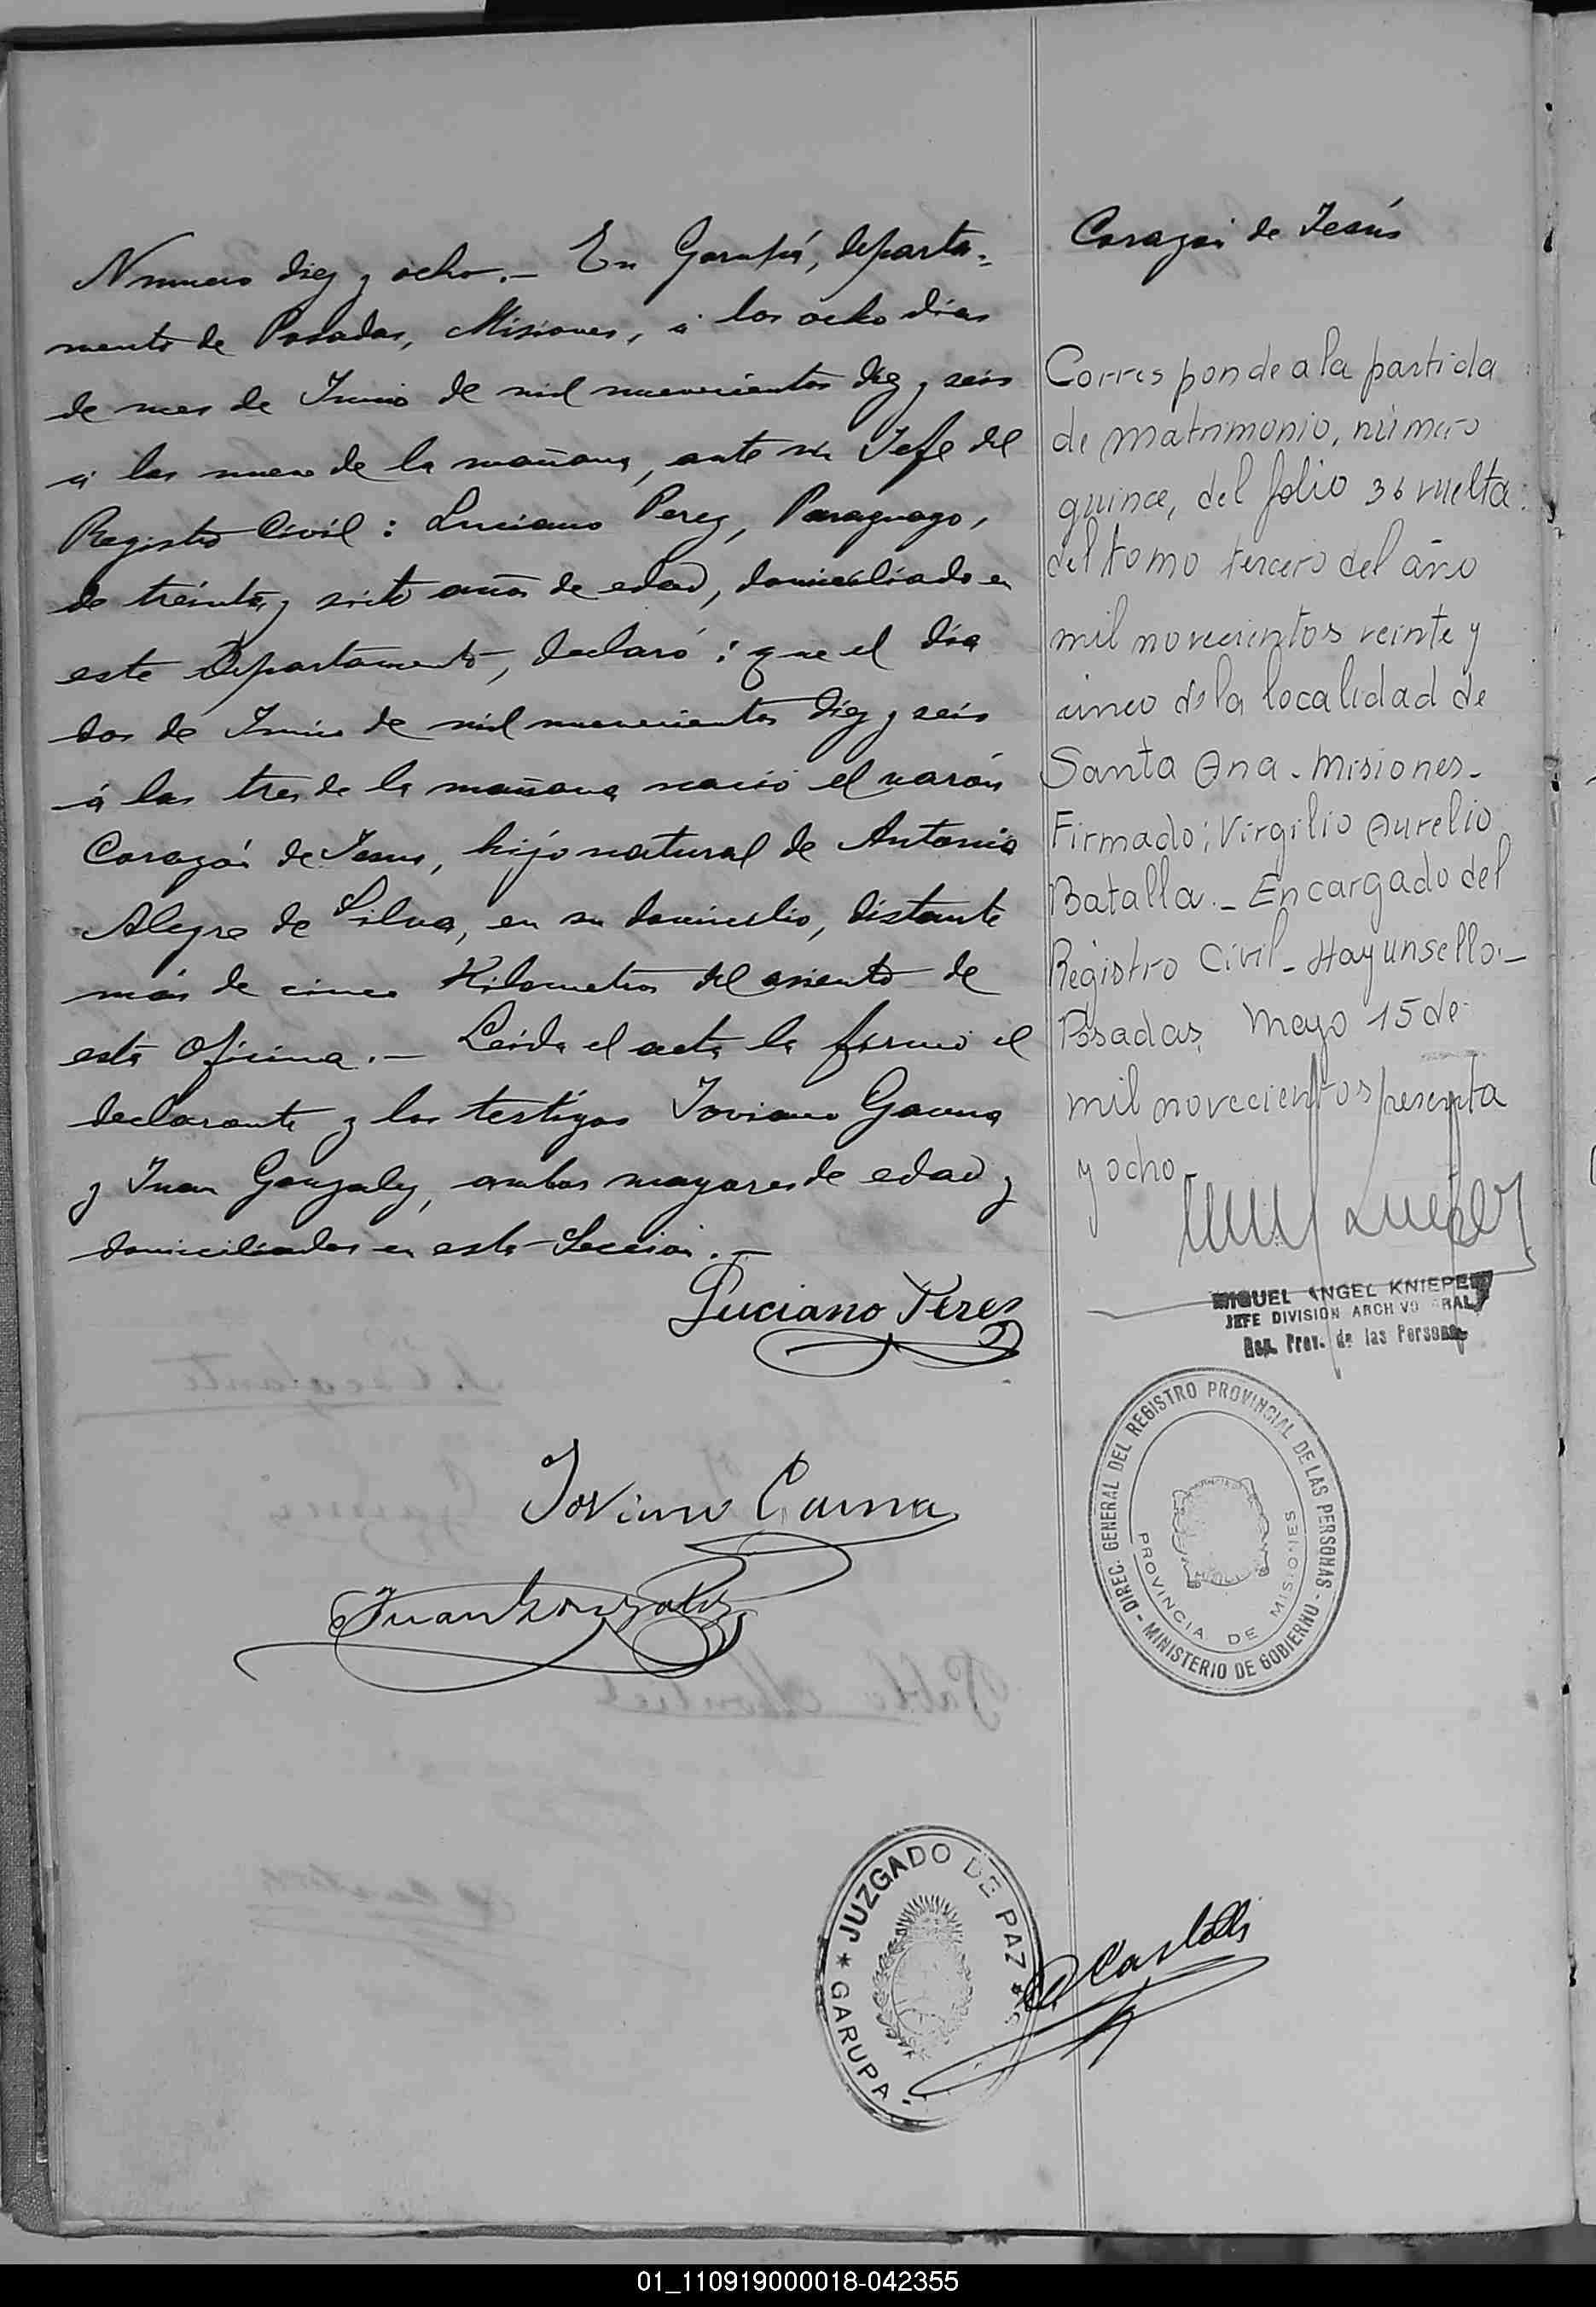 Numero diez y ocho.- En Garupá, departa-
mento de Posadas, Misiones, á los ocho dias
de mes de Junio de mil nuevecientos diez y seis
á las nueve de la mañana, ante mi Jefe del
Registro Civil: Luciano Perez, Paraguayo,
de treinta y siete años de edad, domiciliado en
este Departamento, declaró: que el dia
dos de Junio de mil nuevecientos diez y seis
á las tres de la mañana nació el varón
Corazón de Jesus, hijo natural de Antonia
Alegre de Silva, en su domicilio, distante
más de cinco Kilometros del asiento de
esta Oficina.- Leida el acta la firmó el
declarante y los testigos Joviano Gauna
y Juan Gonzalez, ambos mayores de edad y
domiciliados en esta Seccion.-
Luciano Perez
Joviano Gauna
Juan Gonzalez
Corazón de Jesús
Corresponde a la partida
de matrimonio, número
quince, del folio 36 vuelta
del tomo tercero del año
mil novecientos veinte y
cinco de la localidad de
Santa Ana - Misiones -
Firmado: Virgilio Aurelio
Batalla.- Encargado del
Registro Civil - Hay un sello.-
Posadas, Mayo 15 de
mil novecientos sesenta
y ocho
MIGUEL ANGEL KNIEPER
JEFE DIVISION ARCHIVO GRAL
Reg. Prov. de las Personas
DIREC. GENERAL DEL REGISTRO PROVINCIAL DE LAS PERSONAS - MINISTERIO DE GOBIERNO -
PROVINCIA DE MISIONES
* JUZGADO DE PAZ *
GARUPA -
Castelli
01_110919000018-042355